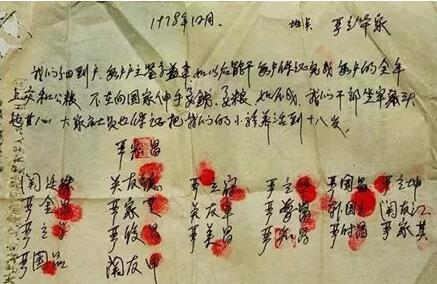 1978年12月. 地点 严立华家
我们分田到户,每户户主签字盖章,如以后能干,每户保证完成每户的全年
上交和公粮,不在向国家伸手要钱要粮,如不成,我们干部坐牢杀头
也甘心,大家社员也保证把我们的小孩养活到十八岁。
严宏昌
关廷珠 关友德 严立符 严立华 严国昌 严立坤
严金昌 严家芝 关友章 严学昌 韩国云 关友江
严立学 严俊昌 严美昌 严付昌 严家其
严国品 关友申